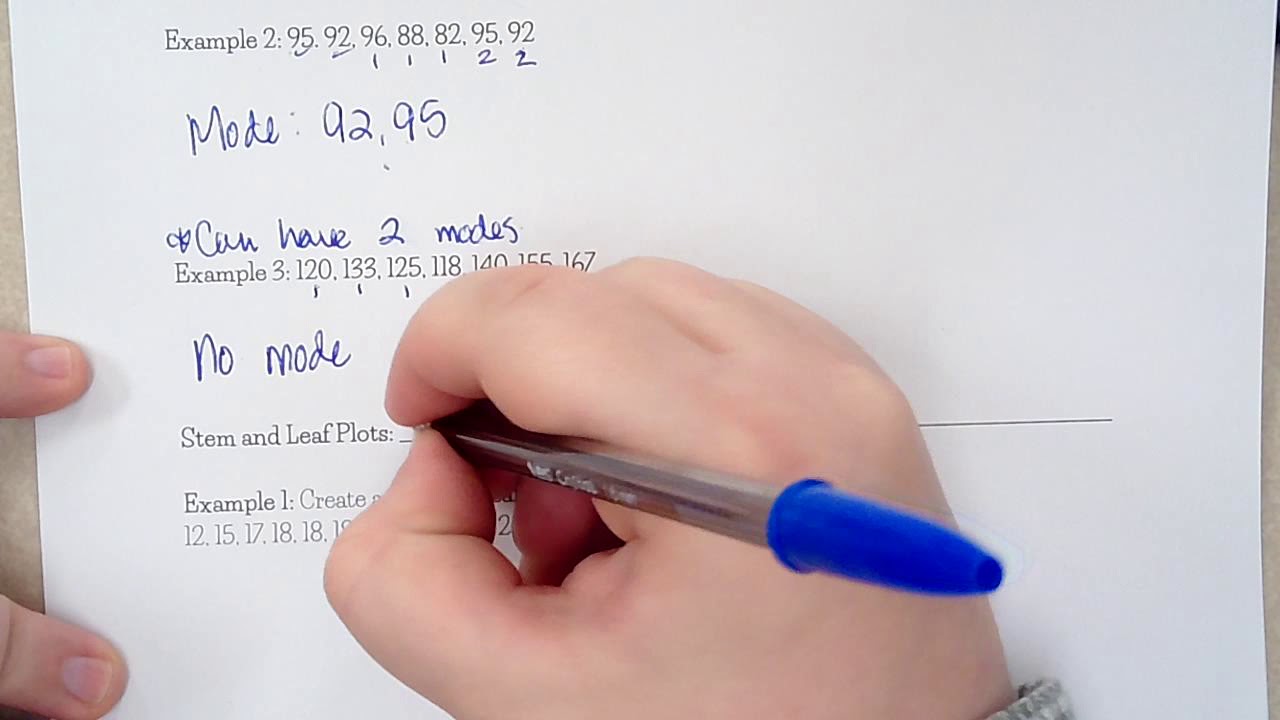 Example 2: 95. 92, 96, 88, 82, 95, 92
1 1 1 2 2
Mode: 92, 95
*Can have 2 modes
Example 3: 120, 133, 125, 118, 140, 155, 167
1 1 1
No mode
Stem and Leaf Plots:
Example 1: Create
12, 15, 17, 18, 18,